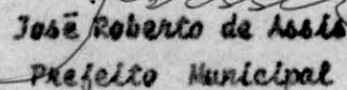 José Roberto de Assis
Prefeito Municipal